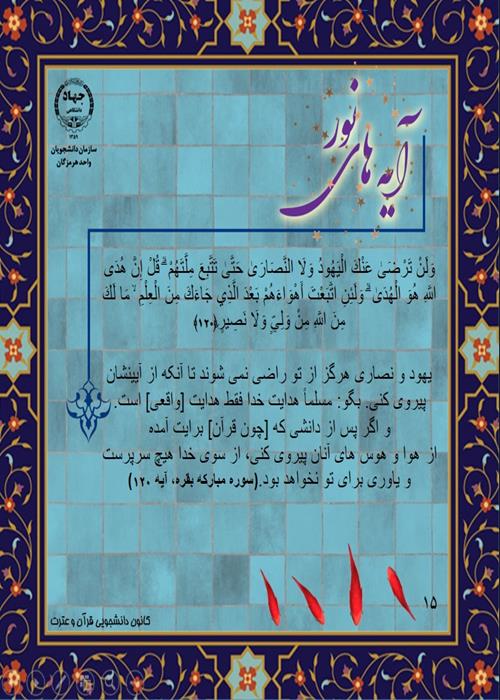 جهاد
دانشگاهی
۱۳۵۹
سازمان دانشجویان
واحد هرمزگان
آیه های نور
وَلَنْ تَرْضَىٰ عَنْكَ الْيَهُودُ وَلَا النَّصَارَىٰ حَتَّىٰ تَتَّبِعَ مِلَّتَهُمْ ۗ قُلْ إِنَّ هُدَى
اللَّهِ هُوَ الْهُدَىٰ ۗ وَلَئِنِ اتَّبَعْتَ أَهْوَاءَهُمْ بَعْدَ الَّذِي جَاءَكَ مِنَ الْعِلْمِ ۙ مَا لَكَ
مِنَ اللَّهِ مِنْ وَلِيٍّ وَلَا نَصِيرٍ﴿۱۲۰﴾
یهود و نصاری هرگز از تو راضی نمی شوند تا آنکه از آیینشان
پیروی کنی. بگو: مسلماً هدایت خدا فقط هدایت [واقعی] است.
و اگر پس از دانشی که [چون قرآن] برایت آمده
از هوا و هوس های آنان پیروی کنی، از سوی خدا هیچ سرپرست
و یاوری برای تو نخواهد بود.(سوره مبارکه بقره، آیه ۱۲۰)
۱۵
کانون دانشجویی قرآن و عترت